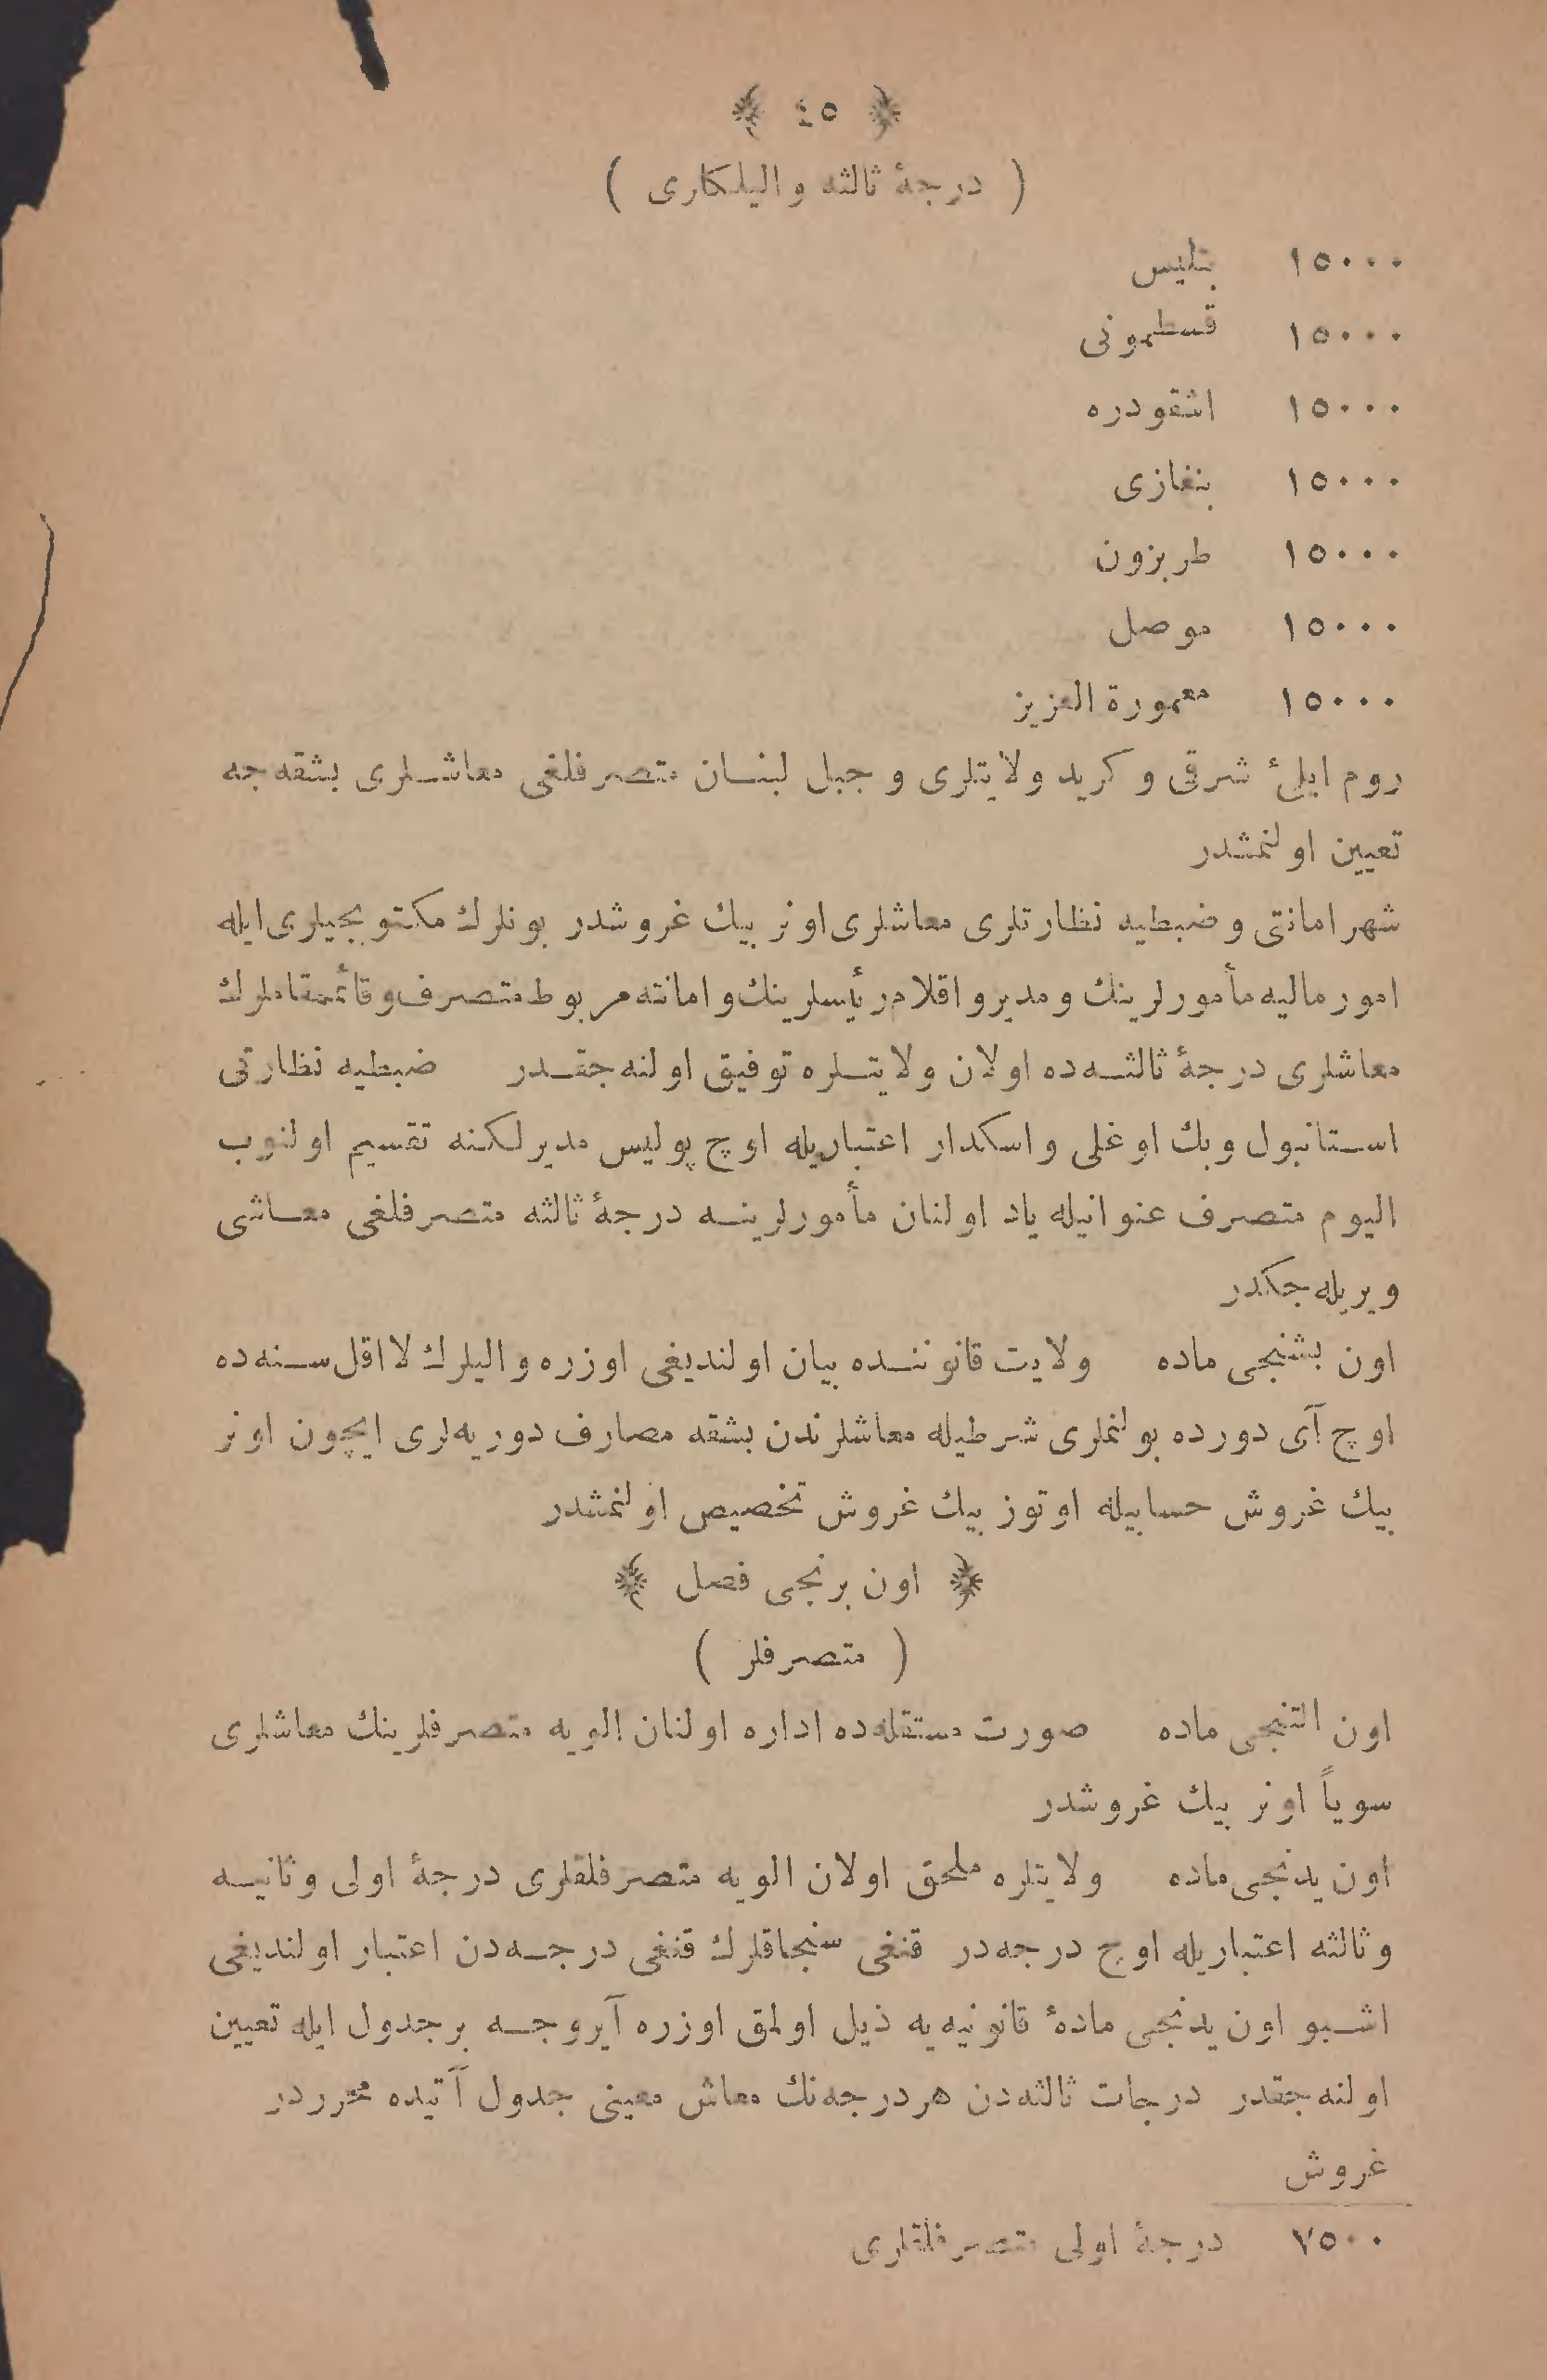 ﴿ ٤٥ ﴾
( درجهٔ ثالثه والیلكلری )
١٥٠٠٠ بتلیس
١٥٠٠٠ قسطمونی
١٥٠٠٠ اشقودره
١٥٠٠٠ بنغازی
١٥٠٠٠ طربزون
١٥٠٠٠ موصل
١٥٠٠٠ معمورة العزیز
روم ایلئ شرقی و كرید ولایتلری و جبل لبنان متصرفلغی معاشلری بشقه جه
تعیین اولنمشدر
شهر امانتی و ضبطیه نظارتلری معاشلری اونر بیك غروشدر بونلرك مكتوبجیلری ایله
امور مالیه مأمورلرینك و مدیر و اقلام رئیسلرینك و امانته مربوط متصرف و قائممقاملرك
معاشلری درجهٔ ثالثه ده اولان ولایتلره توفیق اولنه جقدر ضبطیه نظارتی
استانبول و بك اوغلی و اسكدار اعتباریله اوچ پولیس مدیرلكنه تقسیم اولنوب
الیوم متصرف عنوانیله یاد اولنان مأمورلرینه درجهٔ ثالثه متصرفلغی معاشی
ویریله جكدر
اون بشنجی ماده ولایت قانوننده بیان اولندیغی اوزره والیلرك لااقل سنه ده
اوچ آی دورده بولنملری شرطیله معاشلرندن بشقه مصارف دوریه لری ایچون اونر
بیك غروش حسابیله اوتوز بیك غروش تخصیص اولنمشدر
﴿ اون برنجی فصل ﴾
( متصرفلر )
اون التنجی ماده صورت مستقله ده اداره اولنان الویه متصرفلرینك معاشلری
سویاً اونر بیك غروشدر
اون یدنجی ماده ولایتلره ملحق اولان الویه متصرفلقلری درجهٔ اولی و ثانیه
و ثالثه اعتباریله اوچ درجه در قنغی سنجاقلرك قنغی درجه دن اعتبار اولندیغی
اشبو اون یدنجی مادهٔ قانونیه یه ذیل اولمق اوزره آیروجه بر جدول ایله تعیین
اولنه جقدر درجات ثالثه دن هر درجه نك معاش معینی جدول آتیده محرر در
غروش
٧٥٠٠ درجهٔ اولی متصرفلقلری